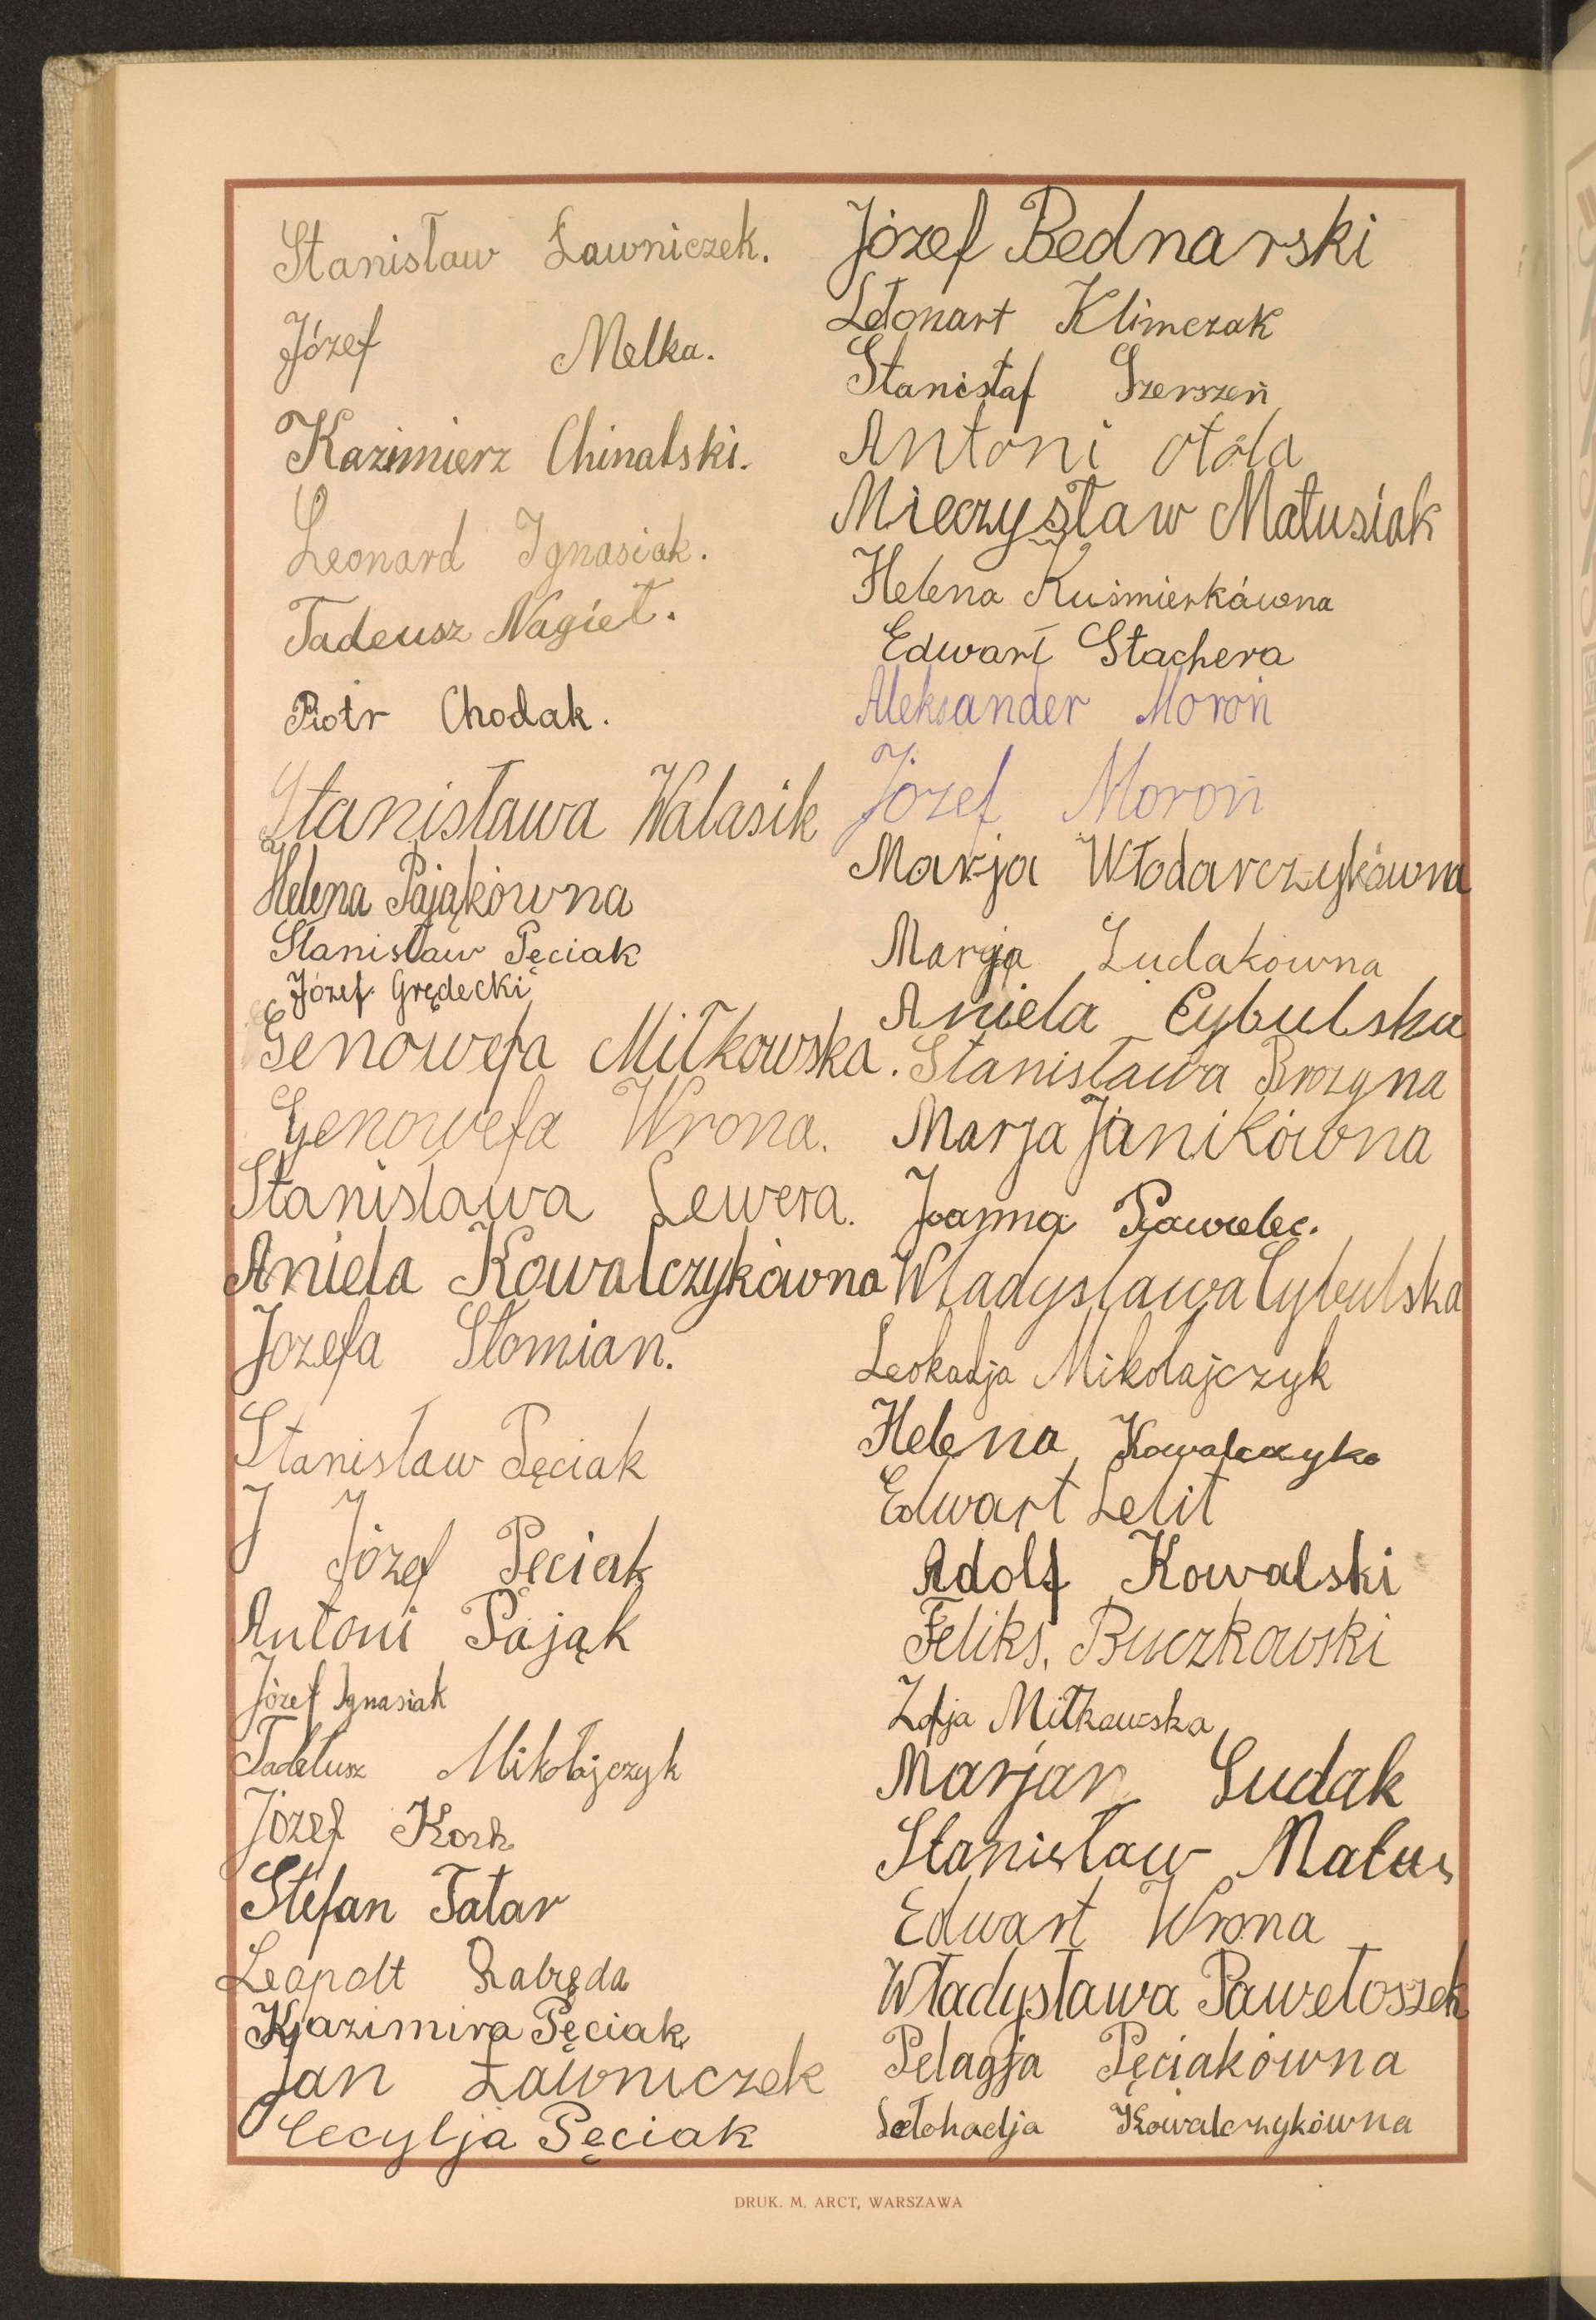 Stanisław Ławniczek.
Józef Melka.
Kazimierz Chinalski.
Leonard Ignasiak.
Tadeusz Nagieł.
Piotr Chodak.
Stanisława Walasik
Helena Pająkówna
Stanisław Pęciak
Józef Grędecki
Genowefa Miłkowska.
Genowefa Wrona.
Stanisława Lewera.
Aniela Kowalczykówna
Jozefa Słomian.
Stanisław Pęciak
J Józef Pęciak
Antoni Pająk
Józef Ignasiak
Tadeusz Mikołajczyk
Józef
Stefan Tatar
Leopolt
Kazimira Pęciak
Jan Ławniczek
Cecylja Pęciak
Józef Bednarski
Leonart Klimczak
Stanisłaf Szerszeń
Antoni
Mieczysław Matusiak
Helena Kuśmierkówna
Edwart Stachera
Aleksander Moroń
Józef Moroń
Marja Włodarczykówna
Marja Ludakowna
Aniela Cybulska
Stanisława Brozyna
Marja Janikówna
Joanna Pawelec.
Władysława Cybulska
Leokadja Mikołajczyk
Helena Kowalczyko
Edwart Lelit
Adolf Kowalski
Feliks. Buczkowski
Zofja Miłkowska
Marjan Ludak
Stanisław Matus
Edwart Wrona
Władysława Pawełoszek
Pelagja Pęciakówna
Kowalczykówna
DRUK. M. ARCT, WARSZAWA